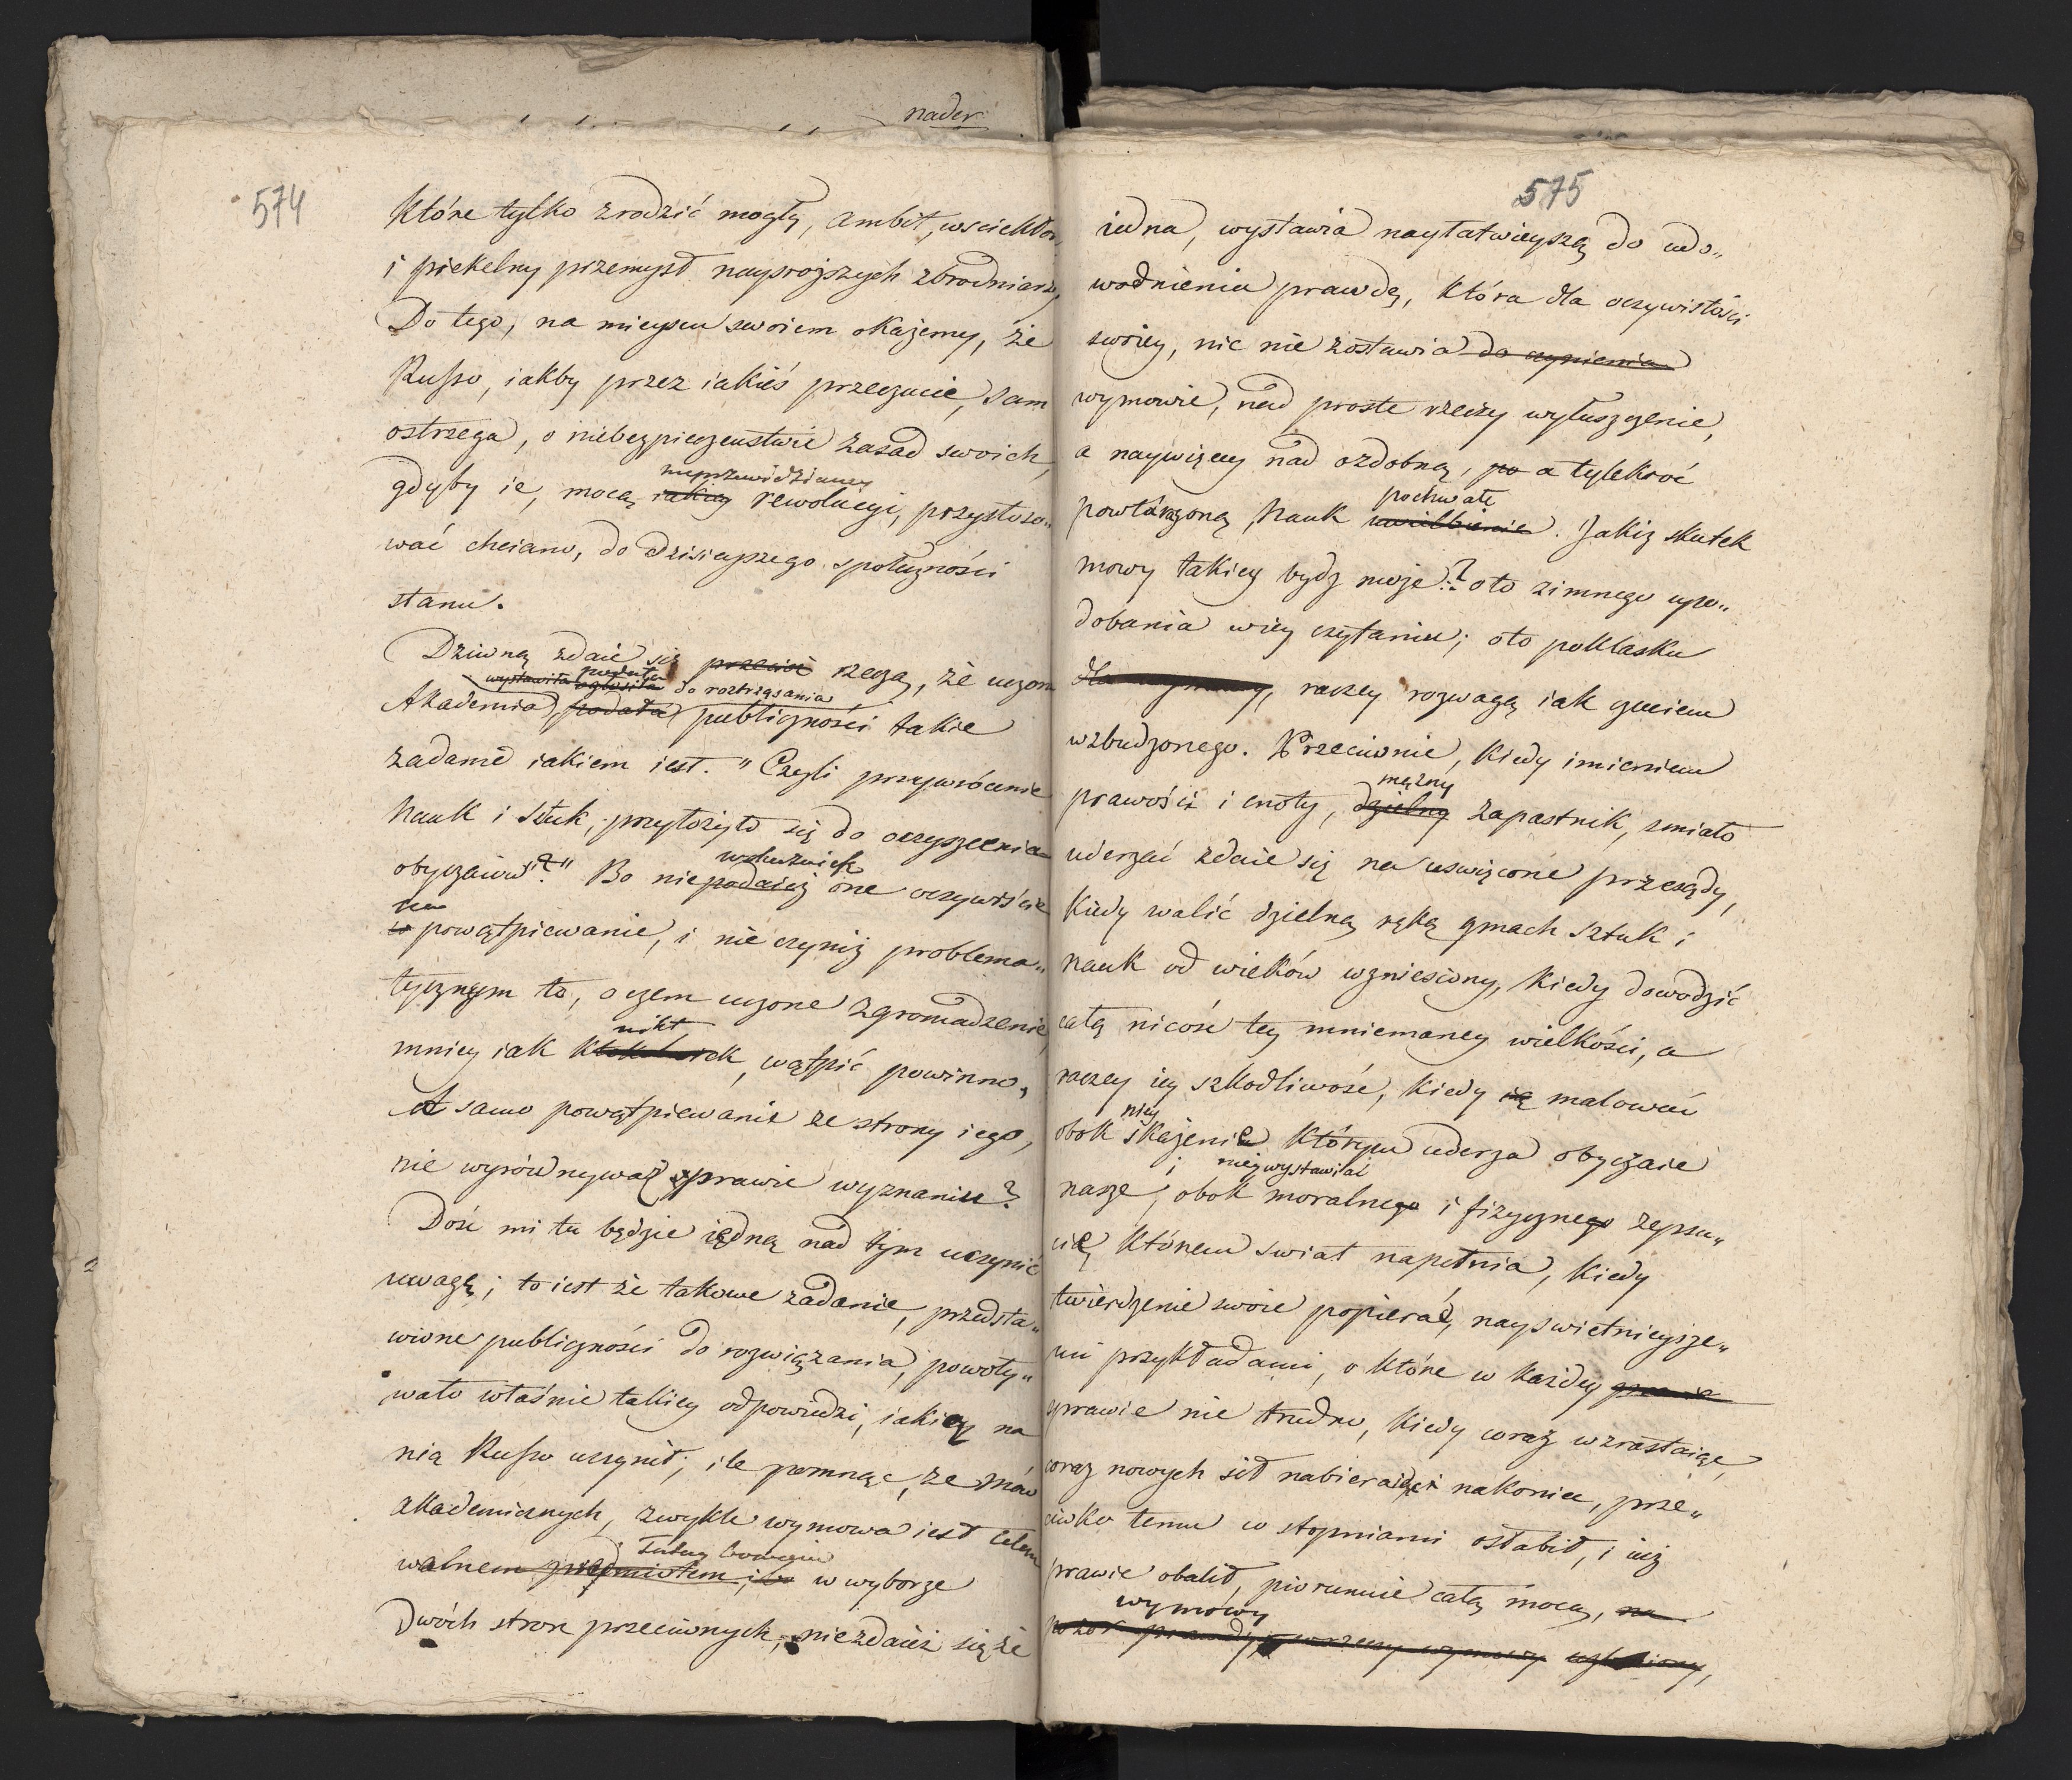 nader
574
które tylko zrodzić mogły, ambit, wściekłoś
i piekelny przemysł naysroższych zbrodniarzy
Do tego, na mieyscu swoiem okażemy, że
Russo, iakby przez iakieś przeczucie, sam
ostrzega, o niebezpieczenstwie zasad swoich,
nieprzewidzianey
gdyby ie, mocą iakiey rewolucyi, przystoso„
wać chciano, do dzisieyszego społeczności
stanu.
Dziwną zdaie się przecież rzeczą, że uczona
wystawiła ogłosiła podała do roztrząsania
Akademia, podała publiczności takie
zadanie iakiem iest. "Czyli przywrócenie
Nauk i Sztuk, przyłożyło się do oczyszczenia
obyczaiów?" Bo niepodaiąż one oczywiście
na
w powątpiewanie, i nie czyniż problema„
tycznym to, o czem uczone zgromadzenie,
nikt
mniey iak ktokolwiek, wątpić powinno,
A samo powątpiewanie ze strony iego,
nie wyrównyważ prawie wyznaniu?
Dość mi tu będzie iedną nad tym uczynić
uwagę; to iest że takowe zadanie, przedsta„
wione publiczności do rozwiązania, powoły„
wało właśnie takiey odpowiedzi, iaką na
nią Russo uczynił; ile pomnąc, że mów
akademicznych, zwykle wymowa iest celem
Tutay bowiem
walnem przedmiotem, bo w wyborze
dwóch stron przeciwnych, niezdaież się że
575
iedna, wystawia nayłatwieyszą do udo„
wodnienia prawdę, która dla oczywistości
swoiey, nic nie zostawia do czynienia
wymowie, nad proste rzeczy wyłuszczenie,
a naywięcey nad ozdobną, po a tylekroć
pochwałę
powtórzoną, Nauk uwielbienie. Jakiż skutek
mowy takiey bydz może? oto zimnego upo„
dobania wiey czytaniu; oto poklasku
dla wymowy, raczey rozwagą iak czuciem
wzbudzonego. Przeciwnie, kiedy imieniem
mężny
prawości i cnoty, dzielny zapastnik, smiało
uderzać zdaie się na uswięcone przesądy,
kiedy walić dzielną ręką gmach sztuk i
nauk od wieków wzniesiony, kiedy dowodzić
całą nicość tey mniemaney wielkości, a
raczey iey szkodliwość, kiedy ią malować
niey
obok skażenie którym uderza obyczaie
i niey wystawiać
nasze, obok moralnego i fizycznego zepsu„
cie, którem swiat napełnia, kiedy
twierdzenie swoie popierać, nayswietnieysze„
mi przykładami, o które w każdey prawie
sprawie nie trudno, kiedy coraz wzrastaiąc,
coraz nowych sił nabieraiąc nakoniec, prze„
ciwko temu co stopniami osłabił, i iuż
prawie obalił, piorunuie całą mocą, na
wymowy